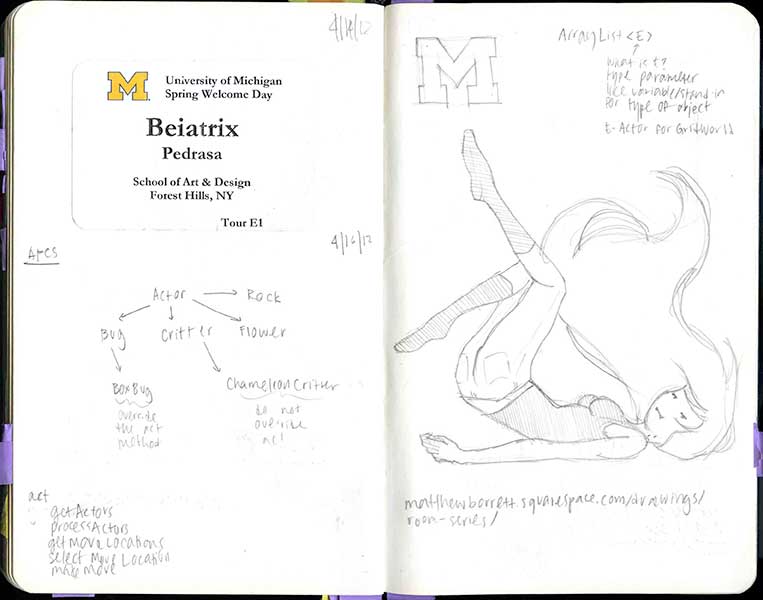 4/14/12
M
University of Michigan
Spring Welcome Day
Beiatrix
Pedrasa
School of Art & Design
Forest Hills, NY
Tour E1
4/16/12
APCS
Actor
Rock
Bug
Critter
Flower
BoxBug
override
the act
method
ChameleonCritter
do not
override
act
act
getActors
processActors
getMoveLocations
select Move Location
make Move
M
ArrayList <E>
what is it?
type parameter
like variable/stand in
for type of object
E-Actor for GridWorld
matthewborrett.squarespace.com/drawings/
room-series/